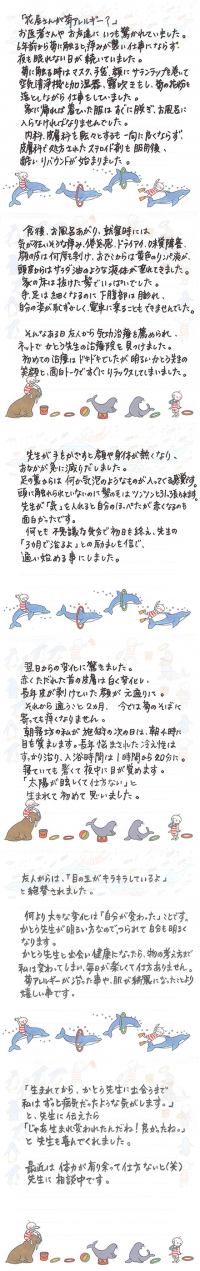 「花屋さんが菊アレルギー？」
お医者さんやお友達にいつも驚かれていました。
6年前から菊に触ると痒みが襲い仕事にならず
夜も眠れない日が続いていました。
菊に触る時はマスク、手袋、顔にサランラップを巻いて
空気清浄機と加湿器、霧吹きをし、菊の花粉を
落としながら仕事をしていました。
家に帰れば着ていた服はすぐに脱ぎ、お風呂に
入らなければなりませんでした。
内科、皮膚科を転々とするも一向に良くならず、
皮膚科で処方されたステロイド剤を服用後、
酷いリバウンドが始まりました。
食後、お風呂あがり、就寝時には
気が狂いそうな痒み、倦怠感、ドライアイ、口味覚障害、
顔の皮は何度も剥け、おでこからは黄色のリンパ液が、
頭皮からはサラダ油のような液体が垂れてきました。
家の床は抜けた髪でいっぱいでした。
手足は細くなるのに下腹部は膨れ、
自分の姿が恥ずかしく、電車に乗ることもできませんでした。
そんなある日友人から気功治療を薦められ、
ネットでかとう先生の治療院を見つけました。
初めての治療はドキドキでしたが明るいかとう先生の
笑顔と、面白トークですぐにリラックスしてしまいました。
先生が手をかざすと顔や身体が熱くなり、
おなかが急に減りだしました。
足の裏からは何か気泡のようなものが入ってくる感覚です。
頭に触れられていないのに髪の毛はツンツンと引っ張られます。
先生が「気」を入れると自分のほっぺたが赤くなるのも
面白かったです。
何とも不思議な気分で初日を終え、先生の
「3カ月で治るよ」との励ましを信じ、
通い始める事にしました。
翌日からの変化に驚きました。
赤くただれた首の皮膚は白く変化し、
長年皮が剥けていた顔が元通りに。
それから通うこと2カ月　今では菊のそばに
寄っても痒くなりません。
朝寝坊の私が施術の次の日は、朝4時に
目を覚まします。長年悩まされた冷え性は
すっかり治り、入浴時間は1時間から20分に。
寝ていても暑くて夜中に目が覚めます。
「太陽が眩しくて仕方ない」と
生まれて初めて思いました。
友人からは、「目の玉がキラキラしているよ」
と絶賛されました。
何より大きな変化は「自分が変わった」ことです。
かとう先生が明るい方なのでつられて自分も明るく
なります。
かとう先生と出会い健康になったら、物の考え方まで
私は変わってしまい、毎日が楽しくて仕方ありません。
菊アレルギーが治った事や、肌が綺麗になったことより
嬉しい事です。
「生まれてから、かとう先生に出会うまで
私はずっと病気だったような気がします。」
と、先生に伝えたら
「じゃあ生まれ変われたんだね！良かったね。」
と先生も喜んでくれました。
最近は体力が有り余って仕方ないと(笑)
先生に相談中です。